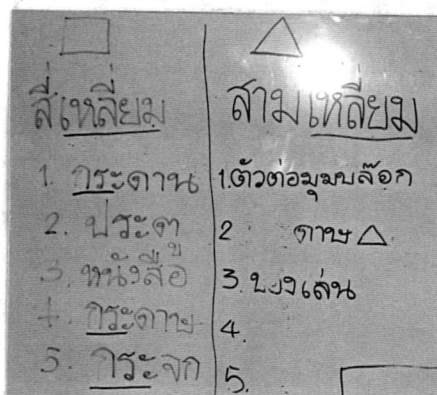 สี่เหลี่ยม
1. กระดาน
2. ประตู
3. หนังสือ
4. กระดาษ
5. กระจก
สามเหลี่ยม
1. ตัวต่อมุมบล๊อก
2 ดาษ
3. ของเล่น
4.
5.